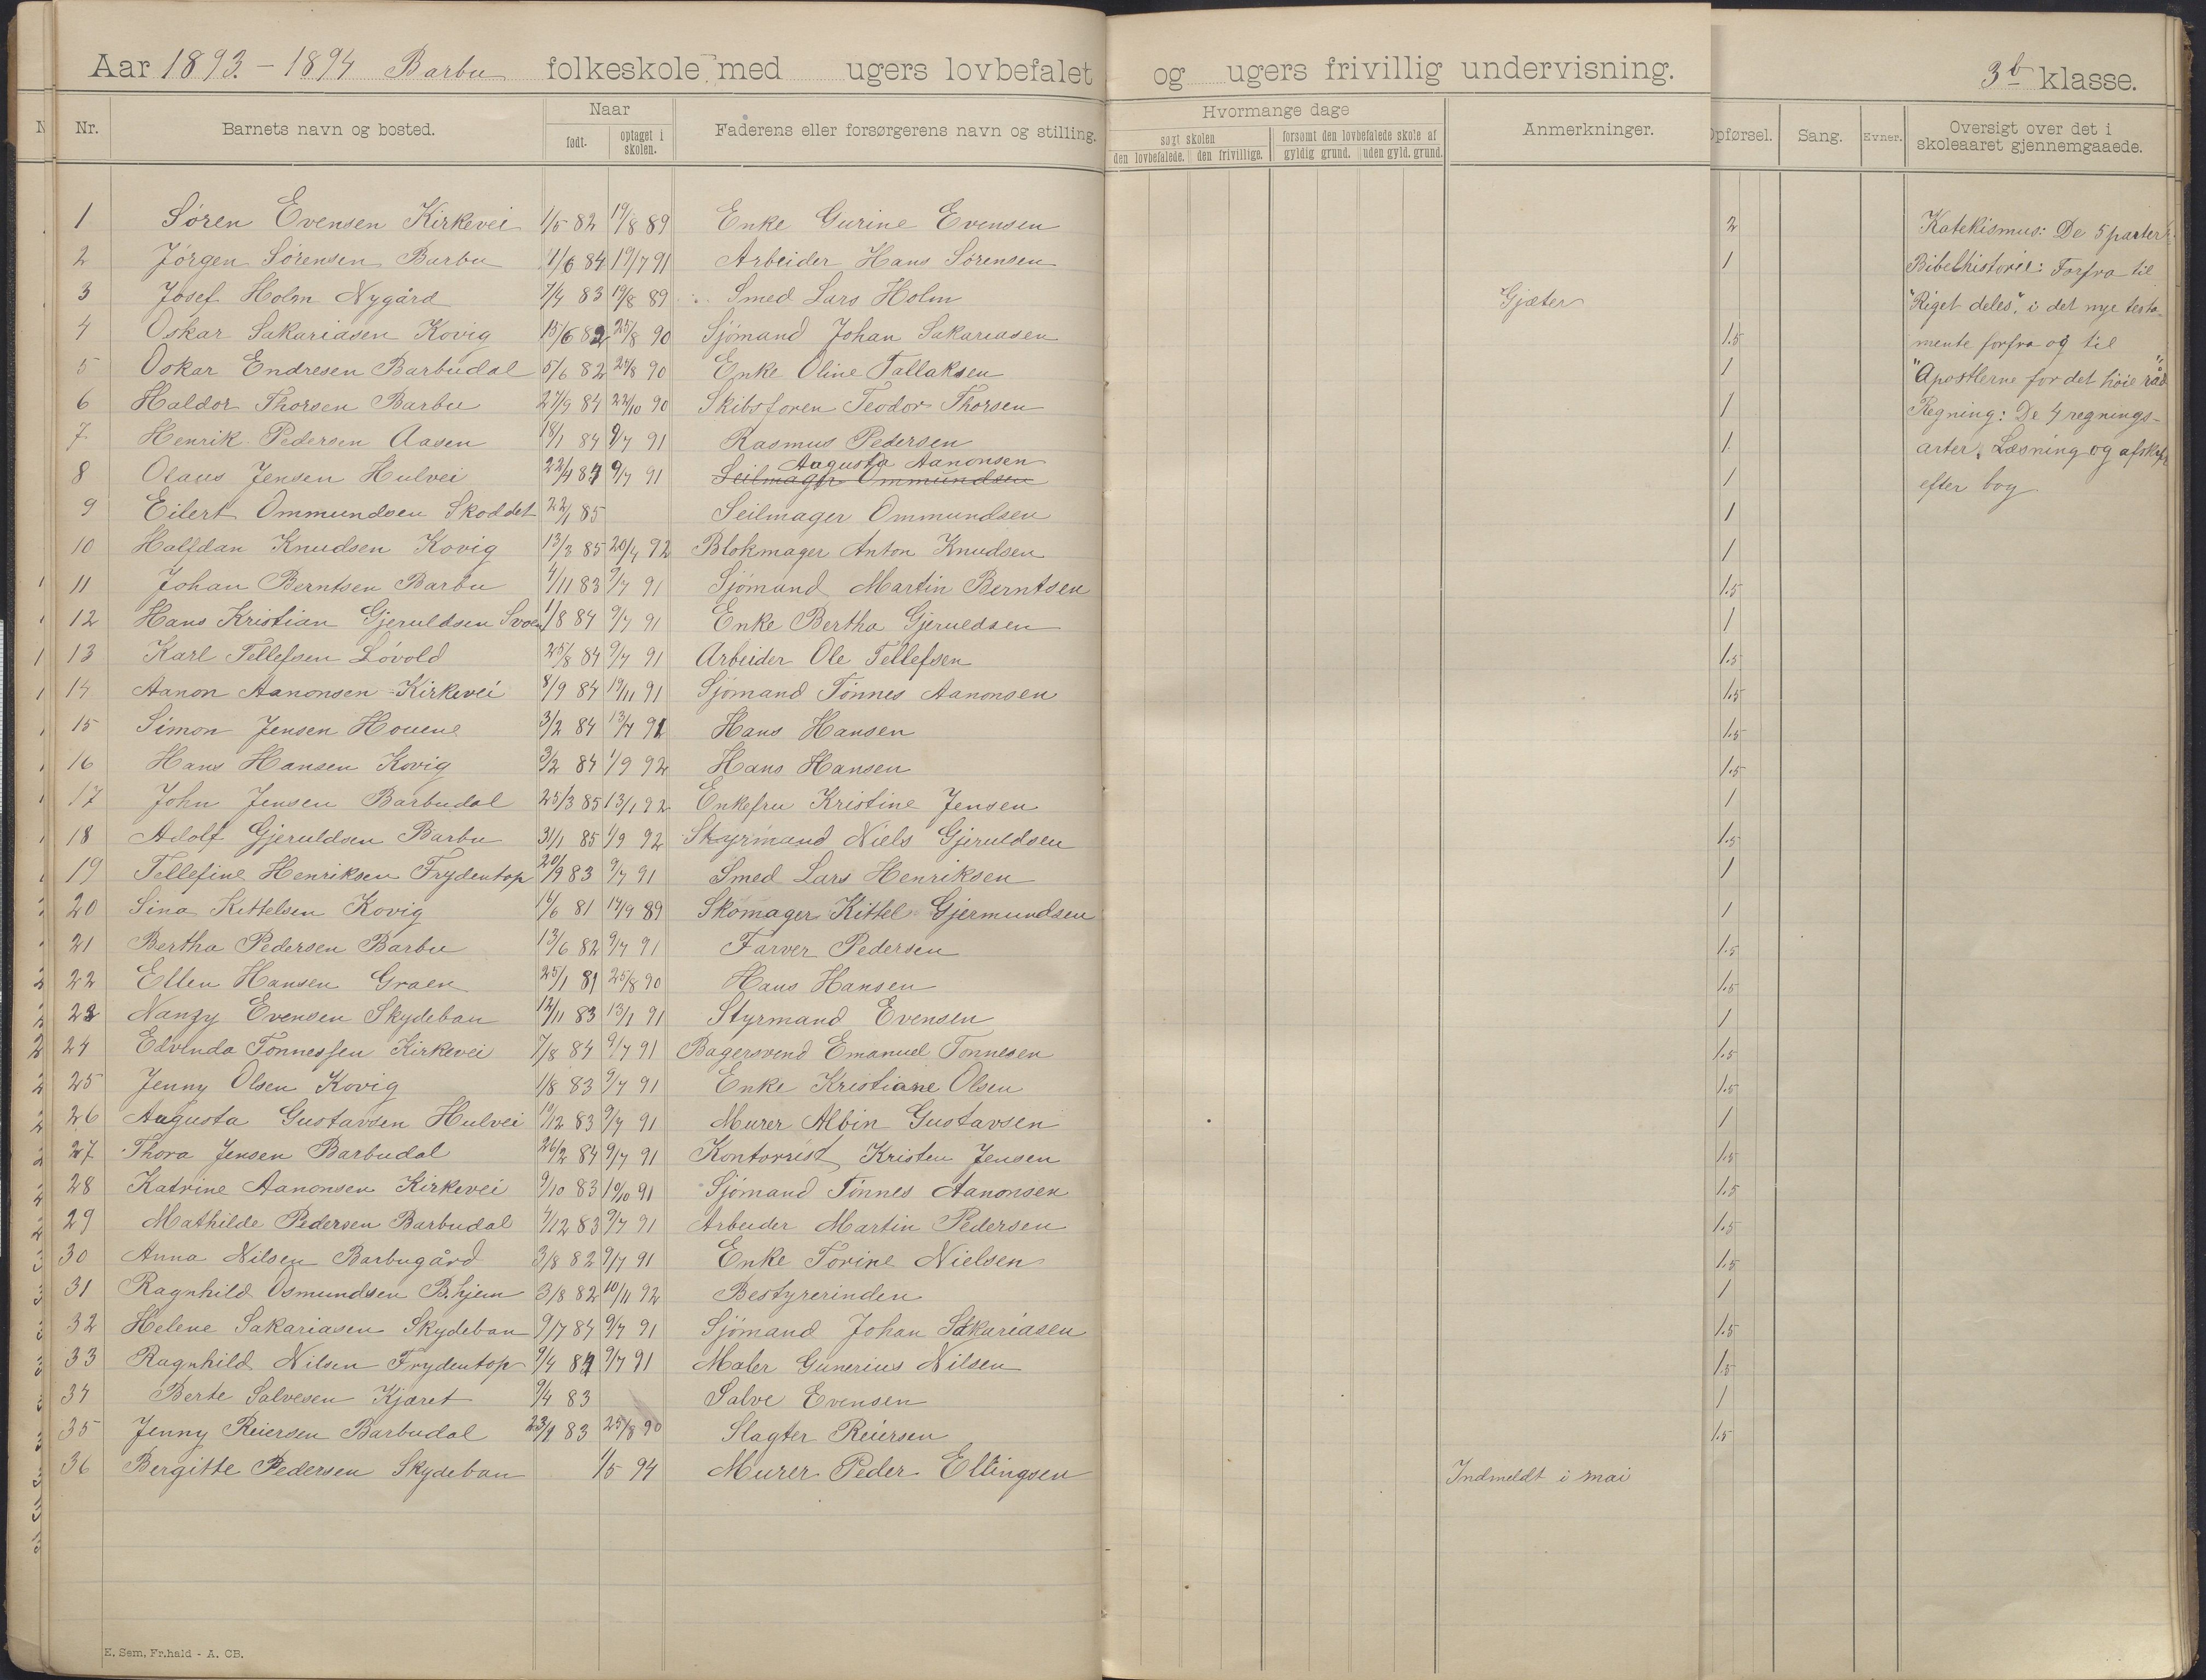 Aar 1893.-1894 Barbu folkeskole med ugers lovbefalet og ugers frivillig undervisning. 3b klasse.
Nr. Barnets navn og bosted. Naar født. optaget i skolen. Faderens eller forsørgerens navn og stilling. Hvormange dage søgt skolen den lovbefalede. den frivillige. forsømt den lovbefalede skole af gyldig grund. uden gyld. grund. Anmerkninger. Opførsel. Sang. Evner. Oversigt over det i skoleaaret gjennemgaaede.
1 Søren Evensen Kirkevei 1/5 82 19/8 89 Enke Gurine Evensen 2 Katekismus: De 5 parter
2 Jørgen Sørensen Barbu 1/6 84 19/7 91 Arbeider Hans Sørensen 1 Bibelhistorie: Forfra til
3 Josef Holm Nygård 7/4 83 19/8 89 Smed Lars Holm Gjæter "Riget deles", i det nye testa-
4 Oskar Sakariasen Kovig 15/6 82 25/8 90 Sjømand Johan Sakariasen 1.5 mente forfra og til
5 Oskar Endresen Barbudal 5/6 82 25/8 90 Enke Oline Tallaksen 1 "Apostlerne for det høie råd"
6 Haldor Thorsen Barbu 27/9 84 22/10 90 Skibsføren Teodor Thorsen 1 Regning: De 4 regnings-
7 Henrik Pedersen Aasen 18/1 84 9/7 91 Rasmus Pedersen 1 arter. Læsning og afskrift
8 Olaus Jensen Hulvei 22/4 84 9/7 91 Augusta Aanonsen Seilmager Ommundsen 1 efter bog
9 Eilert Ommundsen Skoddet 22/1 85 Seilmager Ommundsen 1
10 Halfdan Knudsen Kovig 13/3 85 20/4 92 Blokmager Anton Knudsen 1
11 Johan Berntsen Barbu 4/11 83 9/7 91 Sjømand Martin Berntsen 1.5
12 Hans Kristian Gjeruldsen 1/8 84 9/7 91 Enke Bertha Gjeruldsen 1
13 Karl Tellefsen Løvold 25/8 84 9/7 91 Arbeider Ole Tellefsen 1.5
14 Aanon Aanonsen Kirkevei 8/9 84 19/11 91 Sjømand Tønnes Aanonsen 1.5
15 Simon Jensen Houene 3/2 84 13/7 91 Hans Hansen 1.5
16 Hans Hansen Kovig 3/2 84 1/9 92 Hans Hansen 1.5
17 John Jensen Barbudal 25/3 85 13/1 92 Enkefru Kristine Jensen 1
18 Adolf Gjeruldsen Barbu 31/1 85 1/9 92 Styrmand Niels Gjeruldsen 1.5
19 Tellefine Henriksen Frydentop 20/9 83 9/7 91 Smed Lars Henriksen 1
20 Sina Kittelsen Kovig 16/6 81 14/9 89 Skomager Kittel Gjermundsen 1
21 Bertha Pedersen Barbu 13/6 82 9/7 91 Farver Pedersen 1.5
22 Ellen Hansen Graen 25/1 81 25/8 90 Hans Hansen 1.5
23 Nanzy Evensen Skydeban 12/11 83 13/1 91 Styrmand Evensen 1
24 Edvinda Tønnessen Kirkevei 7/8 84 9/7 91 Bagersvend Emanuel Tønnesen 1.5
25 Jenny Olsen Kovig 1/8 83 9/7 91 Enke Kristiane Olsen 1.5
26 Augusta Gustavsen Hulvei 19/12 83 9/7 91 Murer Albin Gustavsen 1
27 Thora Jensen Barbudal 26/2 84 9/7 91 Kontorist Kristen Jensen 1.5
28 Katrine Aanonsen Kirkevei 9/10 83 19/10 91 Sjømand Tønnes Aanonsen 1.5
29 Mathilde Pedersen Barbudal 4/12 83 9/7 91 Arbeider Martin Pedersen 1.5
30 Anna Nilsen Barbugård 3/8 82 9/7 91 Enke Torine Nielsen 1.5
31 Ragnhild Osmundsen B.hjem 3/8 82 10/11 92 Bestyrerinden 1
32 Helene Sakariasen Skydeban 9/7 84 9/7 91 Sjømand Johan Sakariasen 1.5
33 Ragnhild Nilsen Frydentop 9/4 84 9/7 91 Maler Gunerius Nilsen 1.5
34 Berte Salvesen Kjæret 9/4 83 Salve Evensen 1
35 Jenny Reiersen Barbudal 23/1 83 25/8 90 Slagter Reiersen 1.5
36 Bergitte Pedersen Skydeban 1/5 94 Murer Peder Ellingsen Indmeldt i mai
E. Sem, Fr.hald - A. CB.